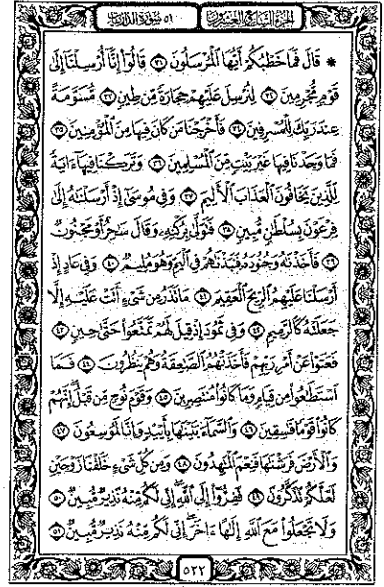 الجزء السابع والعشرون ٥١ سورة الذاريات
* قَالَ فَمَا خَطْبُكُمْ أَيُّهَا ٱلْمُرْسَلُونَ ٣١ قَالُوٓا۟ إِنَّآ أُرْسِلْنَآ إِلَىٰ
قَوْمٍ مُّجْرِمِينَ ٣٢ لِنُرْسِلَ عَلَيْهِمْ حِجَارَةً مِّن طِينٍ ٣٣ مُّسَوَّمَةً
عِندَ رَبِّكَ لِلْمُسْرِفِينَ ٣٤ فَأَخْرَجْنَا مَن كَانَ فِيهَا مِنَ ٱلْمُؤْمِنِينَ ٣٥
فَمَا وَجَدْنَا فِيهَا غَيْرَ بَيْتٍ مِّنَ ٱلْمُسْلِمِينَ ٣٦ وَتَرَكْنَا فِيهَآ ءَايَةً
لِّلَّذِينَ يَخَافُونَ ٱلْعَذَابَ ٱلْأَلِيمَ ٣٧ وَفِى مُوسَىٰٓ إِذْ أَرْسَلْنَٰهُ إِلَىٰ
فِرْعَوْنَ بِسُلْطَٰنٍ مُّبِينٍ ٣٨ فَتَوَلَّىٰ بِرُكْنِهِۦ وَقَالَ سَٰحِرٌ أَوْ مَجْنُونٌ
٣٩ فَأَخَذْنَٰهُ وَجُنُودَهُۥ فَنَبَذْنَٰهُمْ فِى ٱلْيَمِّ وَهُوَ مُلِيمٌ ٤٠ وَفِى عَادٍ إِذْ
أَرْسَلْنَا عَلَيْهِمُ ٱلرِّيحَ ٱلْعَقِيمَ ٤١ مَا تَذَرُ مِن شَىْءٍ أَتَتْ عَلَيْهِ إِلَّا
جَعَلَتْهُ كَٱلرَّمِيمِ ٤٢ وَفِى ثَمُودَ إِذْ قِيلَ لَهُمْ تَمَتَّعُوا۟ حَتَّىٰ حِينٍ ٤٣
فَعَتَوْا۟ عَنْ أَمْرِ رَبِّهِمْ فَأَخَذَتْهُمُ ٱلصَّٰعِقَةُ وَهُمْ يَنظُرُونَ ٤٤ فَمَا
ٱسْتَطَٰعُوا۟ مِن قِيَامٍ وَمَا كَانُوا۟ مُنتَصِرِينَ ٤٥ وَقَوْمَ نُوحٍ مِّن قَبْلُ إِنَّهُمْ
كَانُوا۟ قَوْمًا فَٰسِقِينَ ٤٦ وَٱلسَّمَآءَ بَنَيْنَٰهَا بِأَيْي۟دٍ وَإِنَّا لَمُوسِعُونَ ٤٧
وَٱلْأَرْضَ فَرَشْنَٰهَا فَنِعْمَ ٱلْمَٰهِدُونَ ٤٨ وَمِن كُلِّ شَىْءٍ خَلَقْنَا زَوْجَيْنِ
لَعَلَّكُمْ تَذَكَّرُونَ ٤٩ فَفِرُّوٓا۟ إِلَى ٱللَّهِ إِنِّى لَكُم مِّنْهُ نَذِيرٌ مُّبِينٌ ٥٠
وَلَا تَجْعَلُوا۟ مَعَ ٱللَّهِ إِلَٰهًا ءَاخَرَ إِنِّى لَكُم مِّنْهُ نَذِيرٌ مُّبِينٌ ٥١
٥٢٢